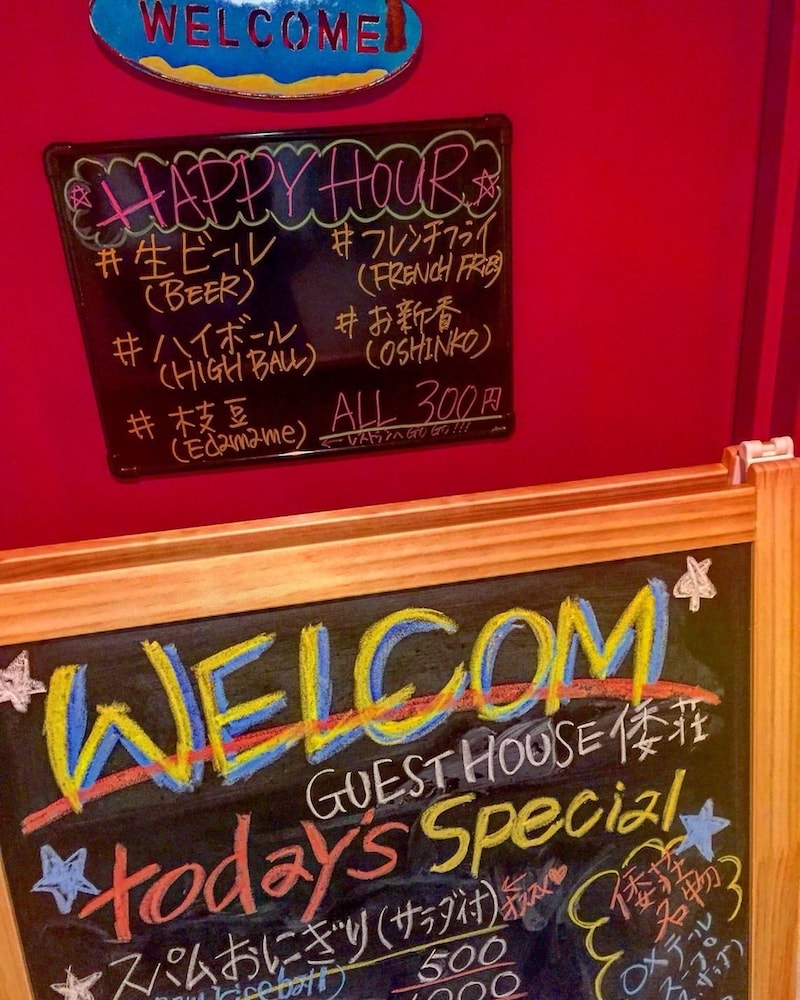 WELCOME
HAPPY HOUR
# 生ビール
(BEER)
# ハイボール
(HIGH BALL)
# 枝豆
(Edamame)
# フレンチフライ
(FRENCH FRIES)
# お新香
(OSHINKO)
ALL 300円
← レストランへ GO GO!!!
WELCOM
GUEST HOUSE 倭荘
today's Special
スパムおにぎり(サラダ付)
rice ball)
500
倭荘
名物
OXテール
スープ